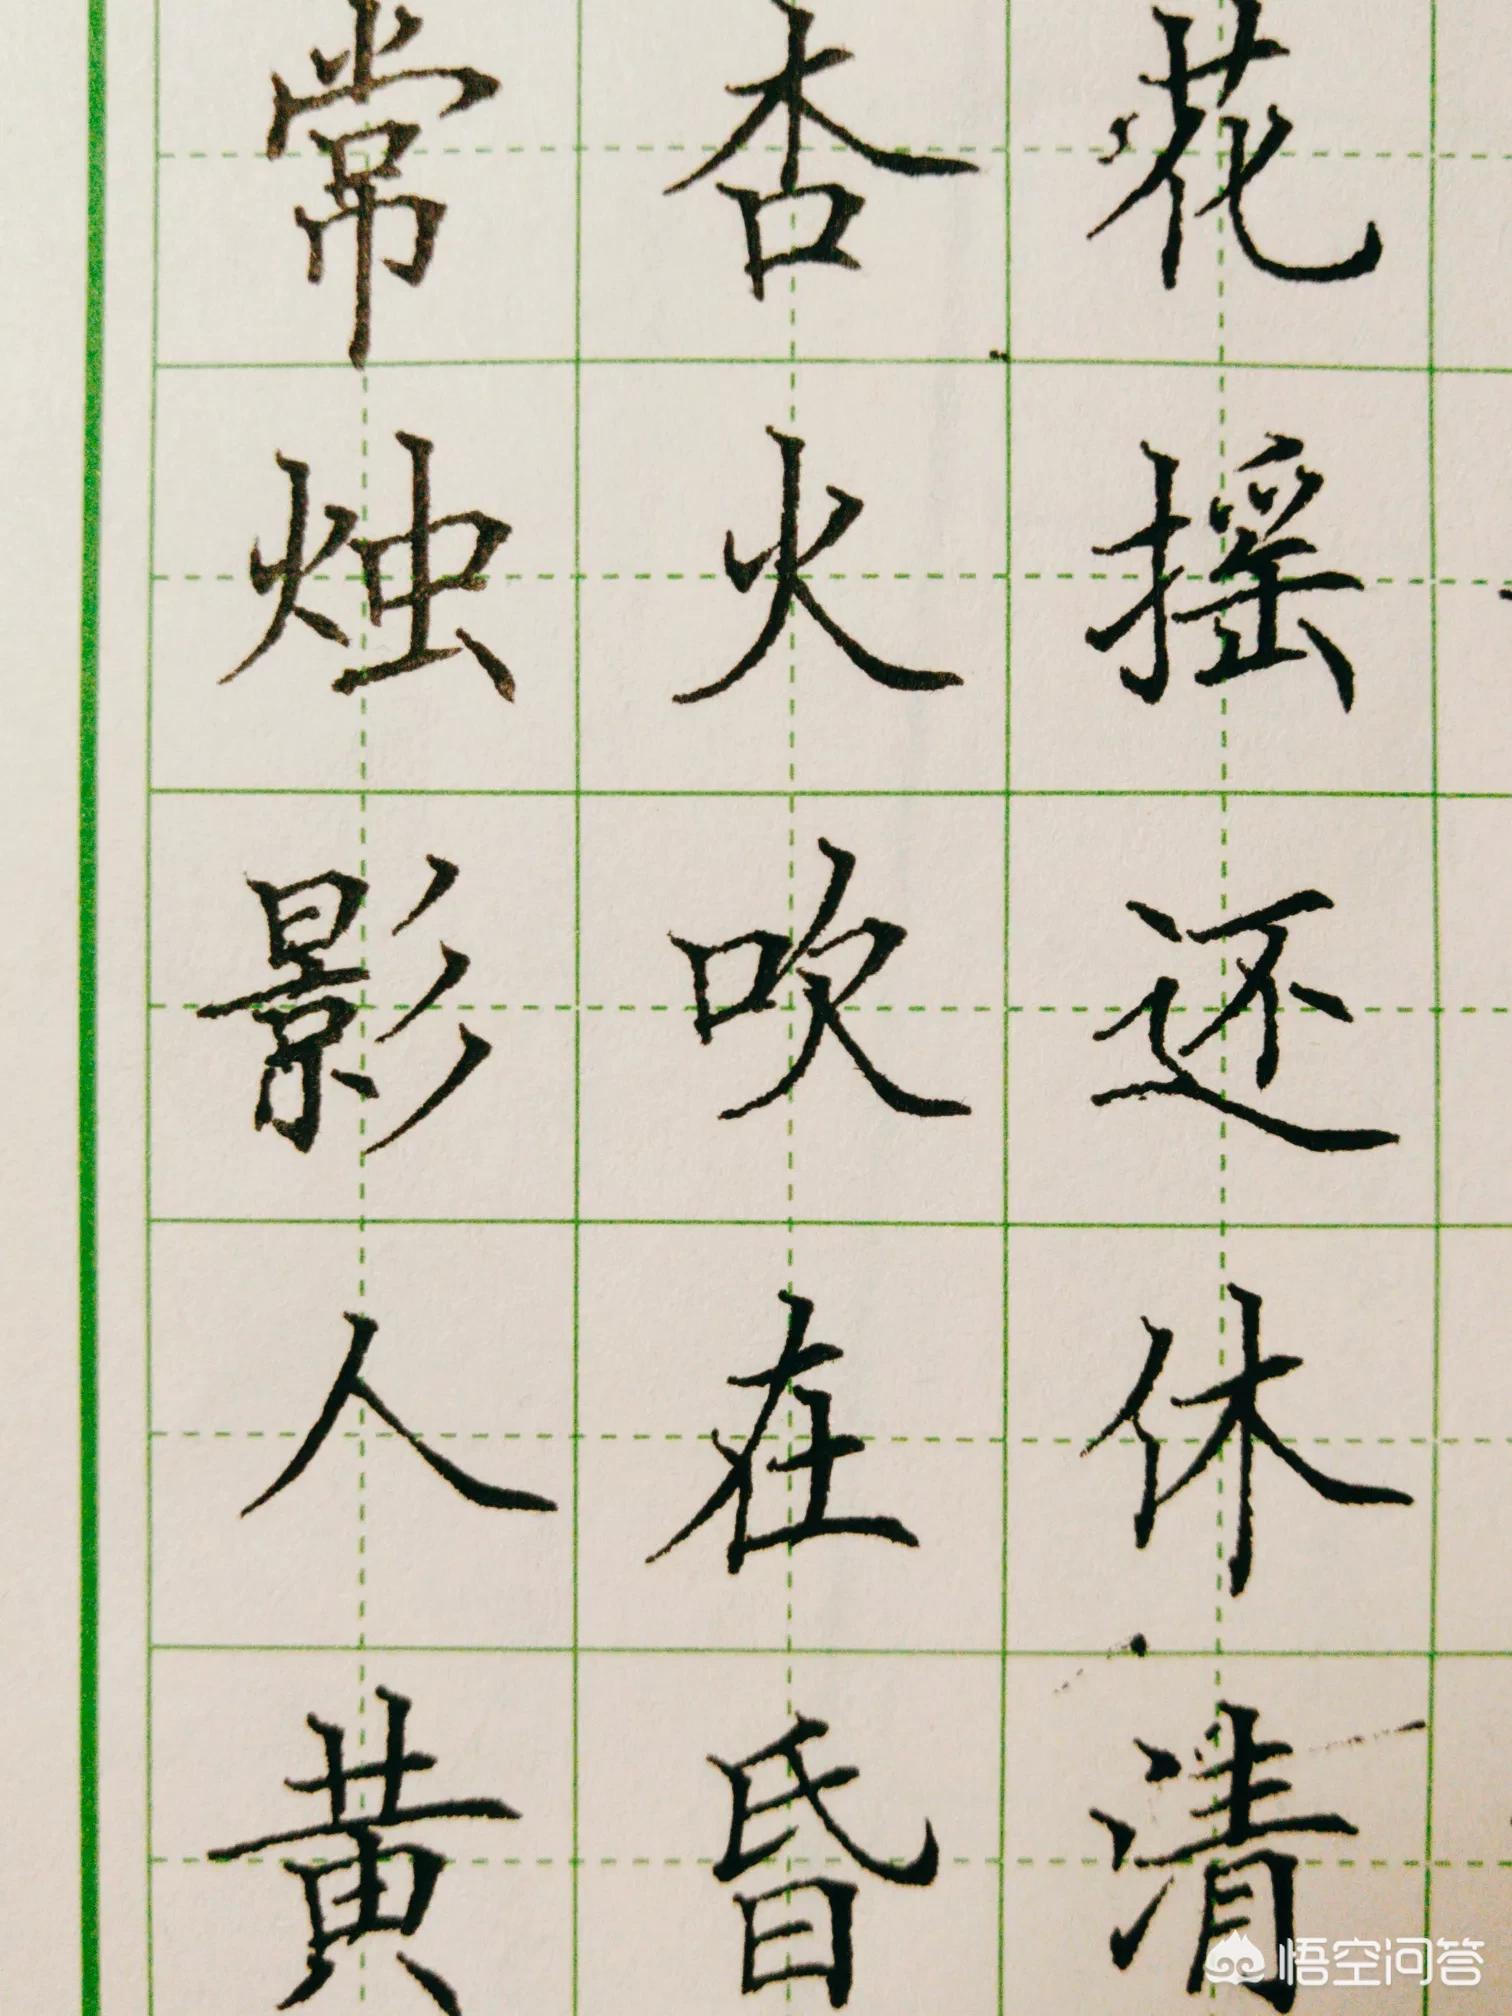 常杏花
烛火摇
影吹还
人在休
黄昏清
悟空问答